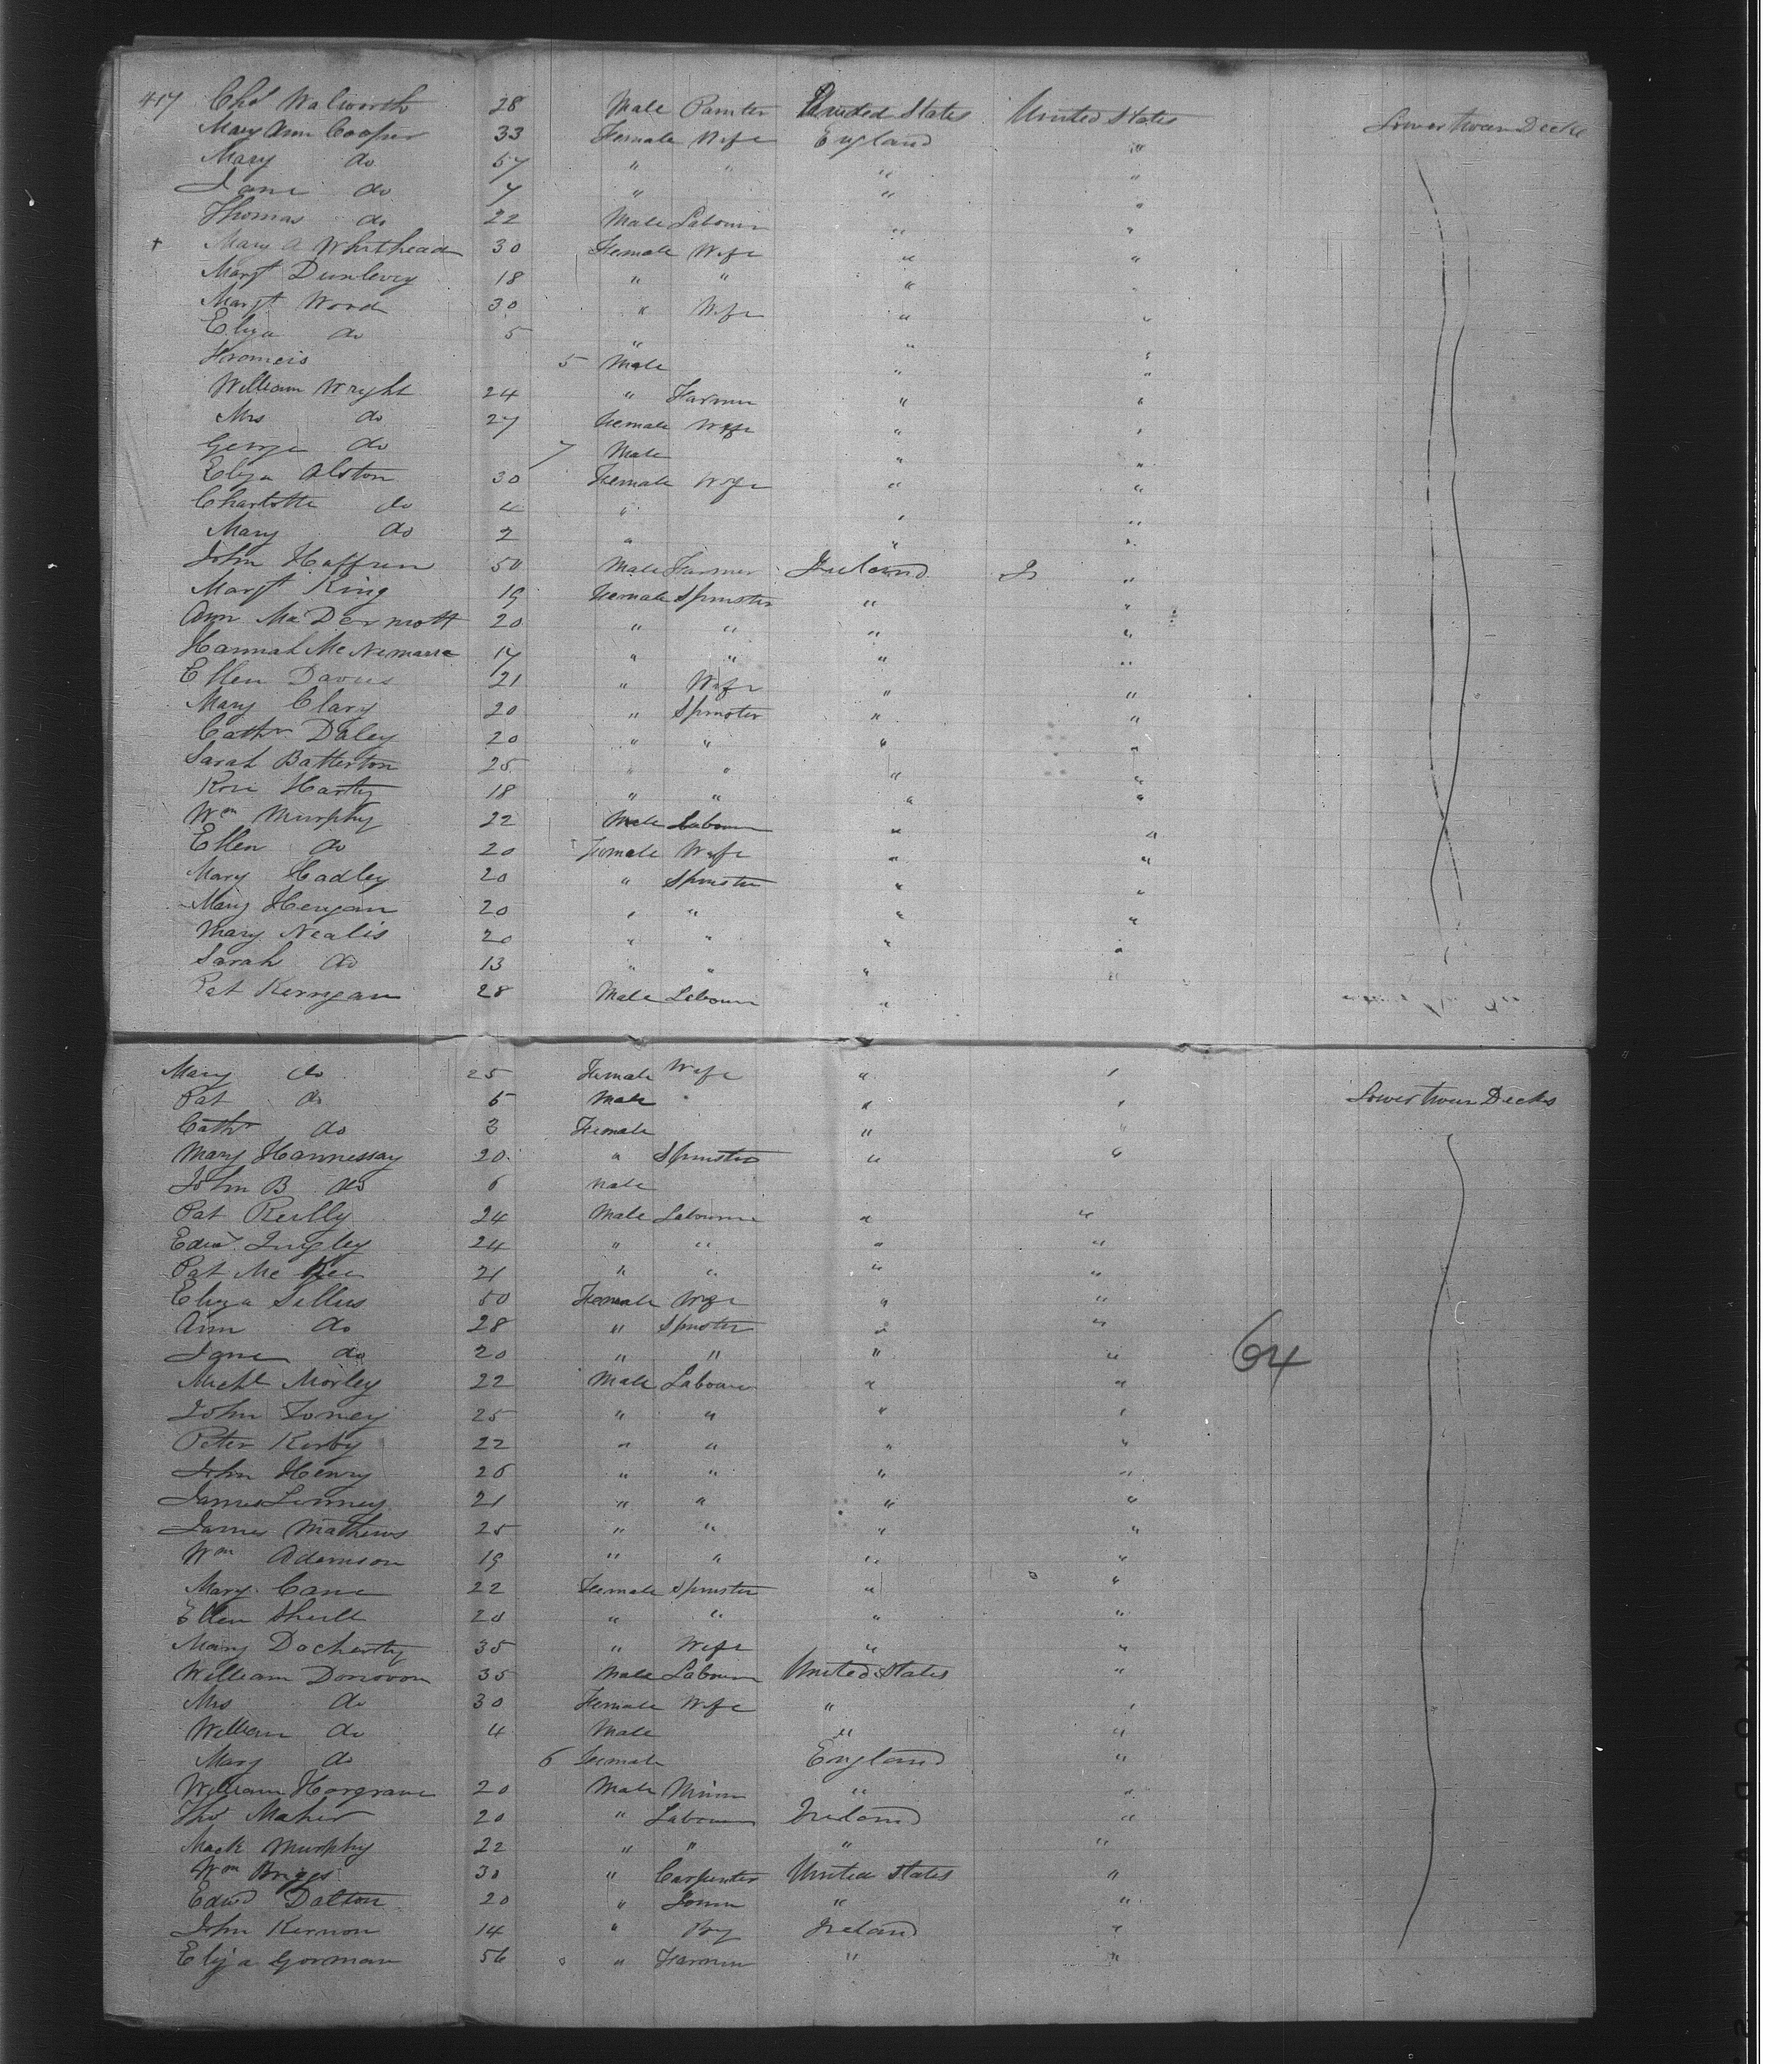 417 Chas Walworth 28 Male Painter United States United States Lower tween Decks
Mary Ann Cooper 33 Female Wife England "
Mary do 57 " " " "
Jane do 7 " " "
Thomas do 22 Male Labourer " "
+ Mary A Whithead 30 Female Wife " "
Margt Dunlevy 18 " " "
Margt Word 30 " Wife " "
Eliza do 5 " " "
Francis 5 Male " "
William Wright 24 " Farmer " "
Mrs do 27 Female Wife " "
George do 7 Male " "
Eliza Alston 30 Female Wife " "
Charlotte do 4 " " "
Mary do 2 " " "
John Haffren 50 Male Farmer Ireland "
Margt King 19 Female Spinster " "
Ann McDermott 20 " " " "
Hannah McNemara 17 " " " "
Ellen Davis 21 " Wife " "
Mary Clary 20 " Spinster " "
Cathn Daley 20 " " " "
Sarah Batterton 25 " " " "
Rose Harty 18 " " " "
Wm Murphy 22 Male Labourer " "
Ellen do 20 Female Wife " "
Mary Hadley 20 " Spinster " "
Mary Hengan 20 " " " "
Mary Nealis 20 " " " "
Sarah do 13 " " " "
Pat Kerrigan 28 Male Labourer "
Mary do 25 Female Wife " "
Pat do 5 Male " " Lower tween Decks
Cathr do 3 Female " "
Mary Hannessay 20 " Spinster " "
John B do 6 Male
Pat Reilly 24 Male Labourer " "
Edwd Quigley 24 " " " "
Pat McKee 21 " " " "
Eliza Sellus 50 Female Wife " "
Ann do 28 " Spinster " "
Jane do 20 " " " " 64
Michl Morley 22 Male Labourer " "
John Toney 25 " " " "
Peter Kerby 22 " " " "
John Henry 26 " " " "
James Linney 21 " " " "
James Mathews 25 " " " "
Wm Adamson 19 " " " "
Mary Cane 22 Female Spinster " "
Ellen 20 " " " "
Mary Docherty 35 " Wife " "
William Donovon 35 Male Labourer United States "
Mrs do 30 Female Wife " "
William do 4 Male " "
Mary do 6 Female England "
William Hargrave 20 Male Miner " "
Thos Maher 20 " Labourer Ireland "
Mack Murphy 22 " " " "
Wm Briggs 30 " Carpenter United States "
Edwd Dalton 20 " " "
John Kernon 14 " Boy Ireland "
Eliza Gorman 56 " Farmer " "